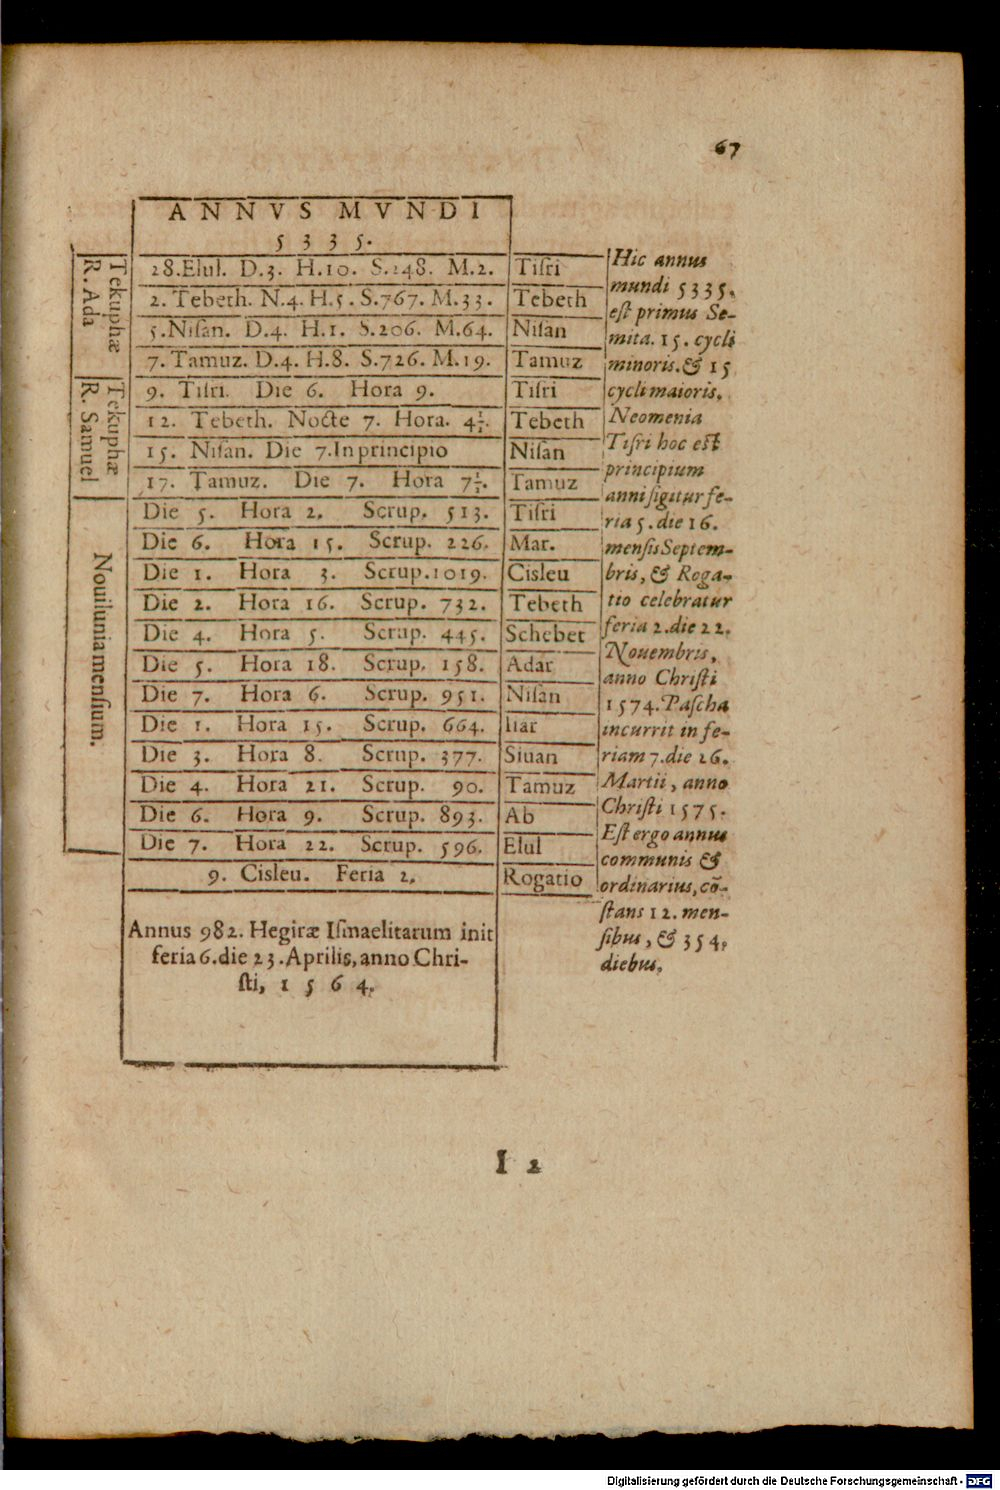 67
ANNVS MVNDI
5335.
Tekuphæ
R. Ada
28.Elul. D.3. H.10. S.248. M.2. Tiſri
2. Tebeth. N.4. H.5. S.767. M.33. Tebeth
5.Niſan. D.4. H.1. S.206. M.64. Niſan
7. Tamuz. D.4. H.8. S.726. M.19. Tamuz
Tekuphæ
R. Samuel
9. Tiſri. Die 6. Hora 9. Tiſri
12. Tebeth. Nocte 7. Hora. 4½. Tebeth
15. Niſan. Die 7.In principio Niſan
17. Tamuz. Die 7. Hora 7½. Tamuz
Nouilunia menſium.
Die 5. Hora 2. Scrup. 513. Tiſri
Die 6. Hora 15. Scrup. 226. Mar.
Die 1. Hora 3. Scrup.1019. Cisleu
Die 2. Hora 16. Scrup. 732. Tebeth
Die 4. Hora 5. Scrup. 445. Schebet
Die 5. Hora 18. Scrup. 158. Adar
Die 7. Hora 6. Scrup. 951. Niſan
Die 1. Hora 15. Scrup. 664. Iiar
Die 3. Hora 8. Scrup. 377. Siuan
Die 4. Hora 21. Scrup. 90. Tamuz
Die 6. Hora 9. Scrup. 893. Ab
Die 7. Hora 22. Scrup. 596. Elul
9. Cisleu. Feria 2. Rogatio
Annus 982. Hegiræ Iſmaelitarum init
feria 6.die 23.Aprilis, anno Chri-
ſti, 1564.
Hic annus
mundi 5335.
eſt primus Se-
mita. 15. cycli
minoris. & 15
cycli maioris.
Neomenia
Tiſri hoc eſt
principium
anni figitur fe-
ria 5. die 16.
menſis Septem-
bris, & Roga-
tio celebratur
feria 2. die 22.
Nouembris,
anno Chriſti
1574. Paſcha
incurrit in fe-
riam 7. die 26.
Martii, anno
Chriſti 1575.
Eſt ergo annus
communis &
ordinarius, cõ-
ſtans 12. men-
ſibus, & 354.
diebus.
I 2
Digitalisierung gefördert durch die Deutsche Forschungsgemeinschaft - DFG